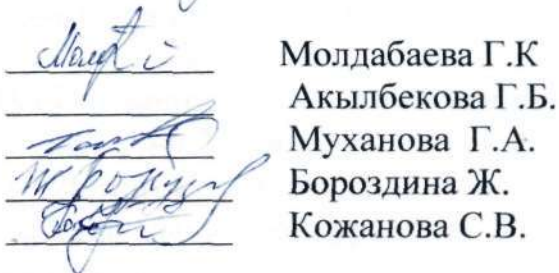 Молдабаева Г.К
Акылбекова Г.Б.
Муханова Г.А.
Бороздина Ж.
Кожанова С.В.